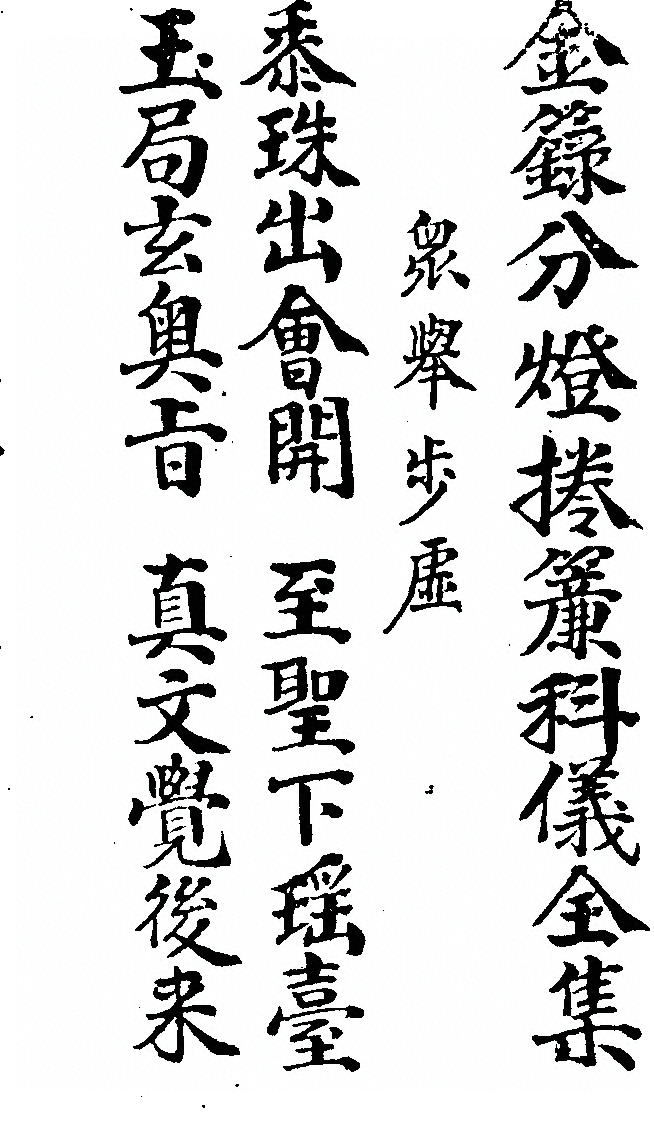 金籙分燈捲簾科儀全集
衆舉步虛
黍珠出會開 至聖下瑶臺
玉局玄奥旨 真文覺後来